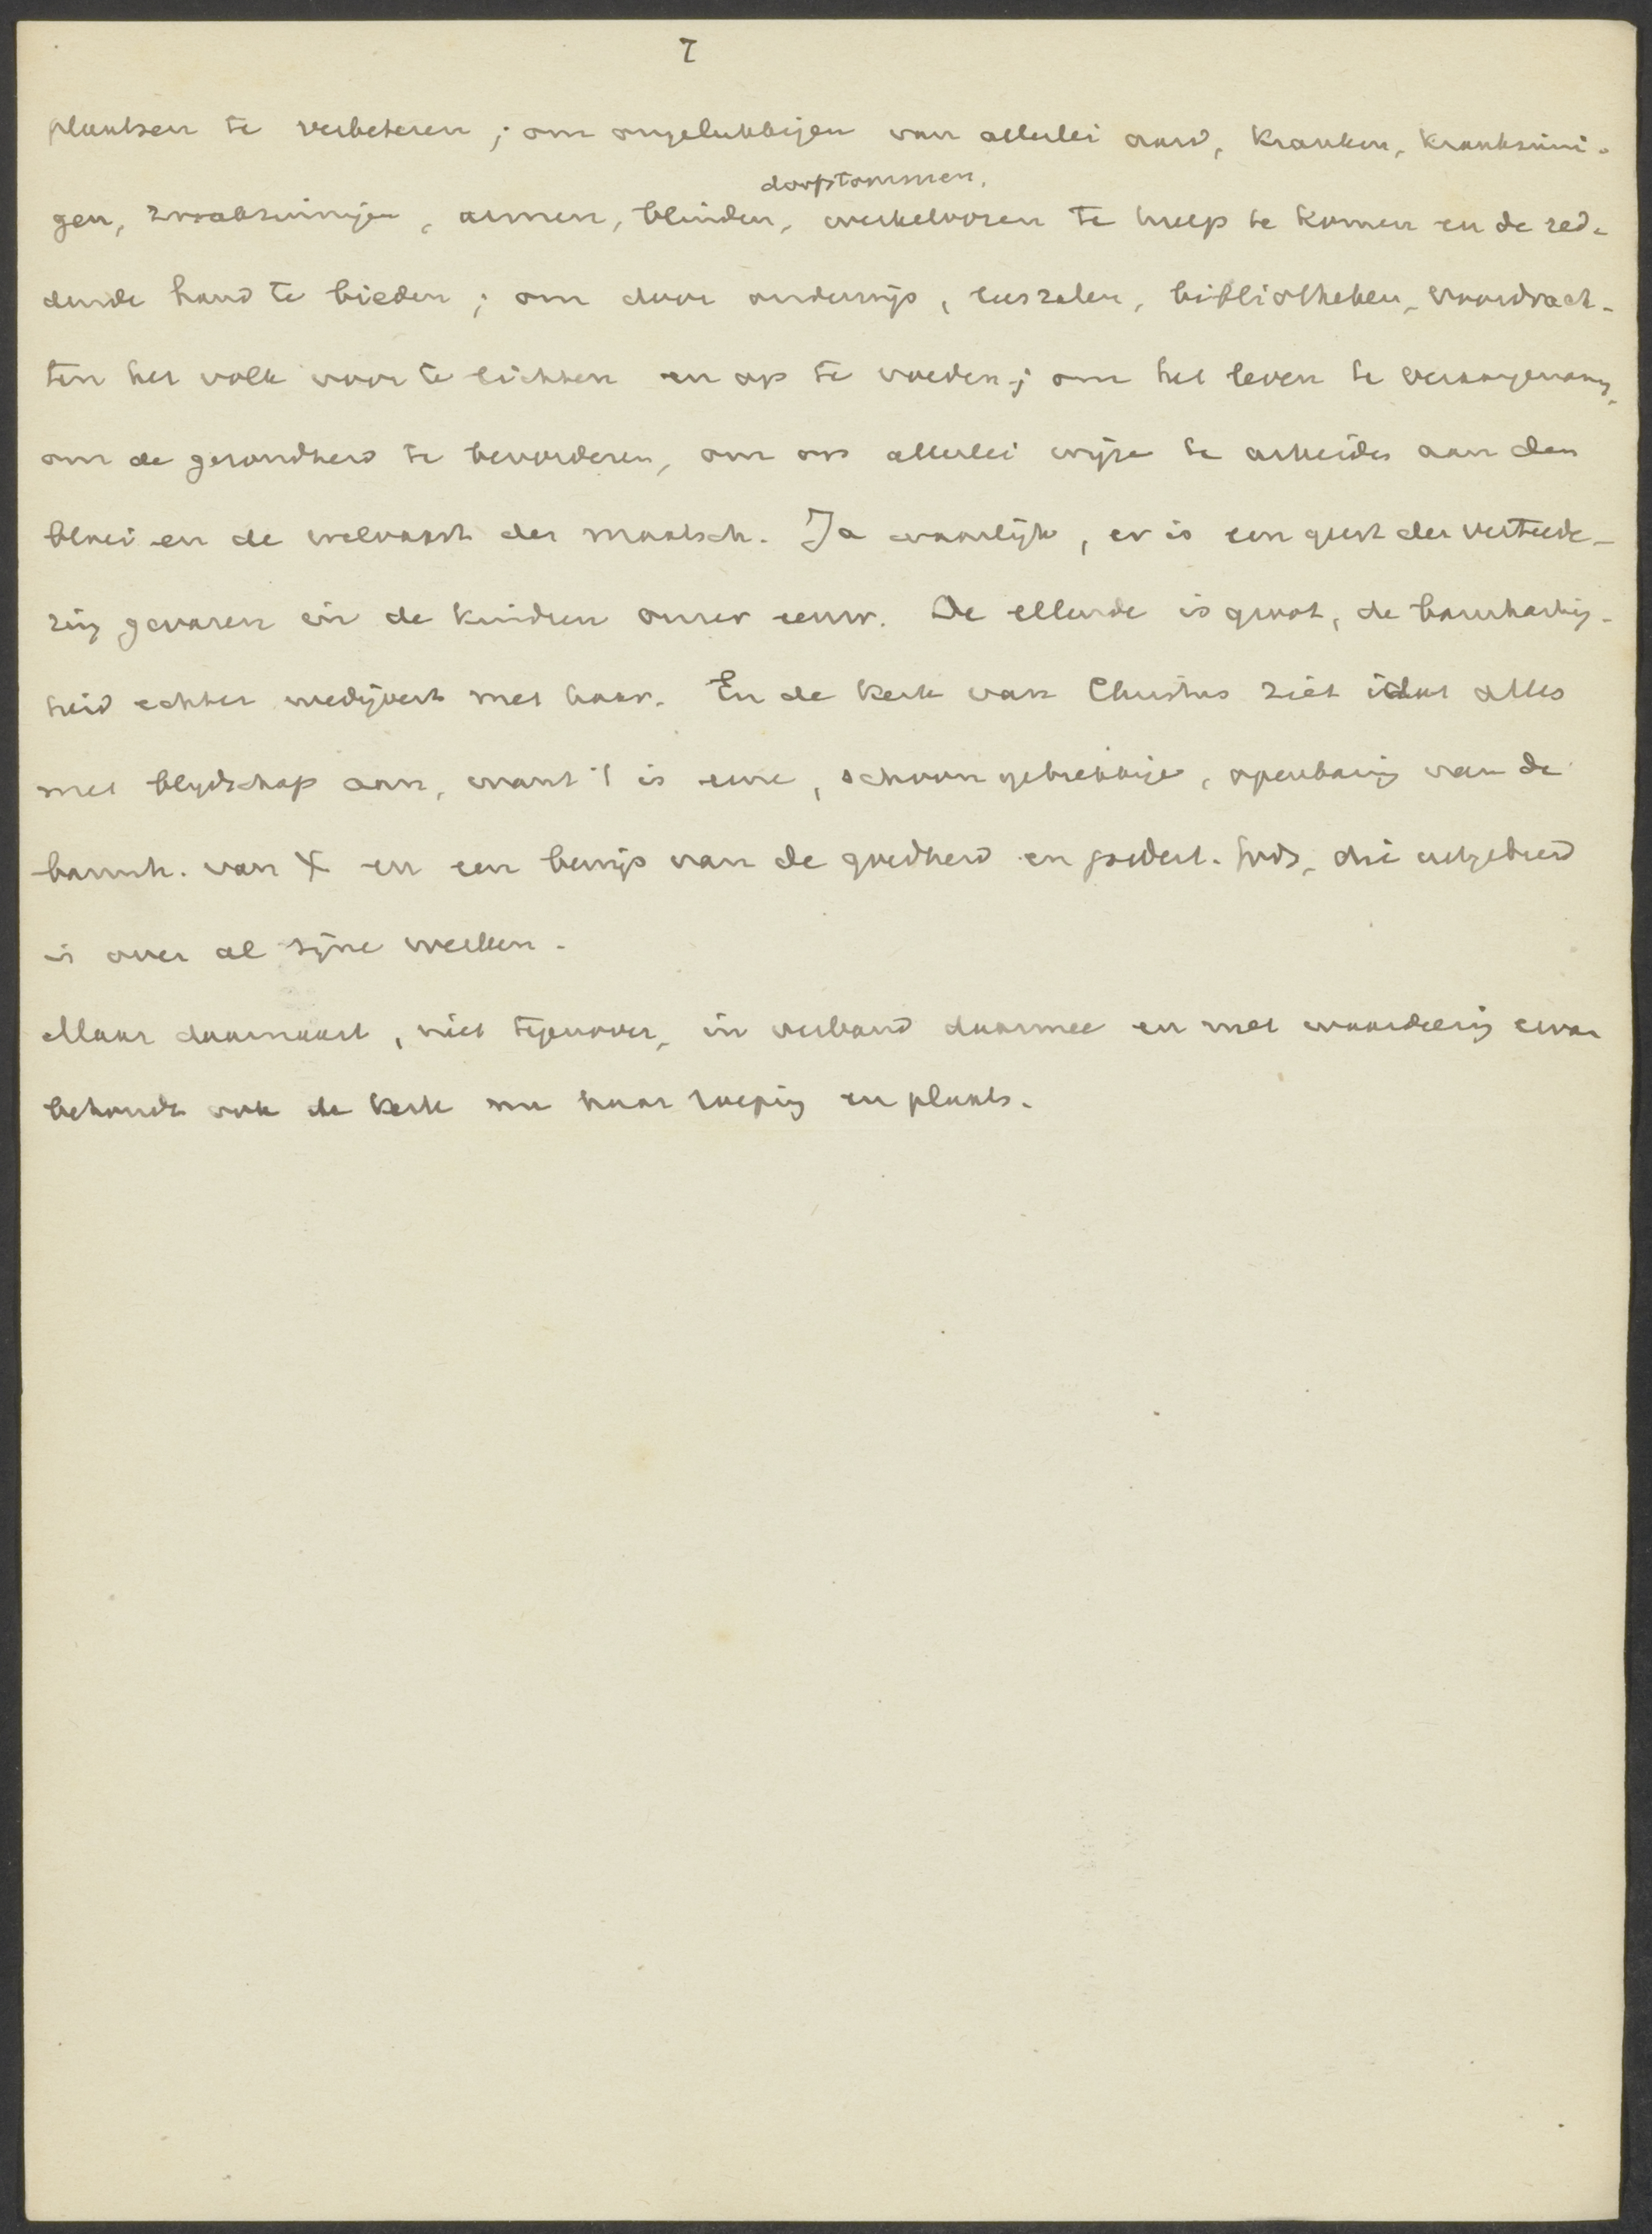 7
plaatsen te verbeteren; om ongelukkigen van allerlei aard, kranken, krankzinni-
doofstommen,
gen, zwakzinnigen, armen, blinden, werkeloozen te hulp te komen en de red-
dende hand te bieden; om door onderwijs, leeszalen, bibliotheken, voordrach-
ten het volk voor te lichten en op te voeden; om het leven te veraangenam,
om de gezondheid te bevorderen, om op allerlei wijze te arbeiden aan den
bloei en de welvaart der maatsch. Ja waarlijk, er is een geest der verteede-
ring gevaren in de kindren onzer eeuw. De ellende is groot, de barmhartig-
heid echter wedijvert met haar. En de kerk van Christus ziet dat alles
met blijdschap aan, want 't is eene, schoon gebrekkige, openbaring van de
barmh. van X en een bewijs van de goedheid en goedert. Gods, die uitgebreid
is over al zijne werken.
Maar daarnaast, niet tegenover, in verband daarmee en met waardeering ervan
behoudt ook de kerk nu haar roeping en plaats.